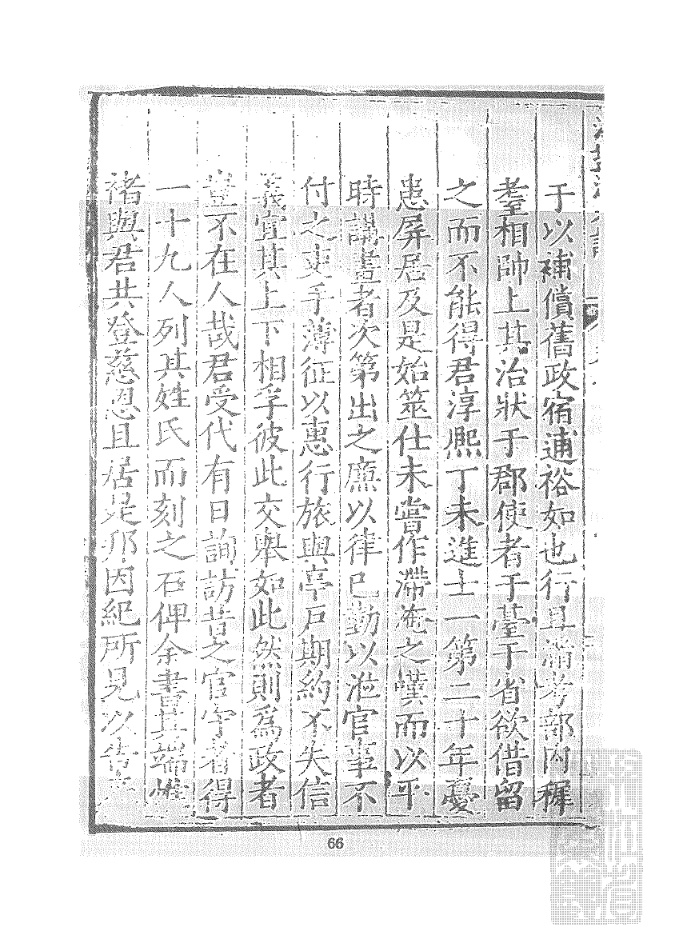 于以補償舊政宿逋裕如也行且滿考部内穉
耋相帥上其治狀于郡使者于臺于省欲借留
之而不能得君淳熙丁未進士一第二十年憂
患屏居及是始筮仕未嘗作滯淹之嘆而以平
時講書者次第出之廉以律己勤以涖官事不
付之吏手薄征以惠行旅與亭戸期約不失信
義宜其上下相孚彼此交舉如此然則為政者
豈不在人哉君受代有日詢訪昔之官守者得
一十九人列其姓氏而刻之石俾余書其端惟
禇與君共登慈恩且居是邦因紀所見以告
66